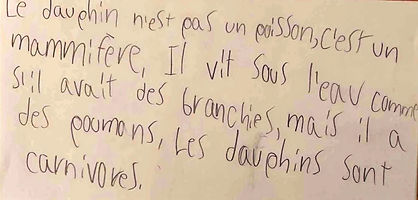 Le dauphin n'est pas un poisson, c'est un
mammifère, Il vit sous l'eau comme
s'il avait des branchies, mais il a
des poumons, Les dauphins sont
carnivores.